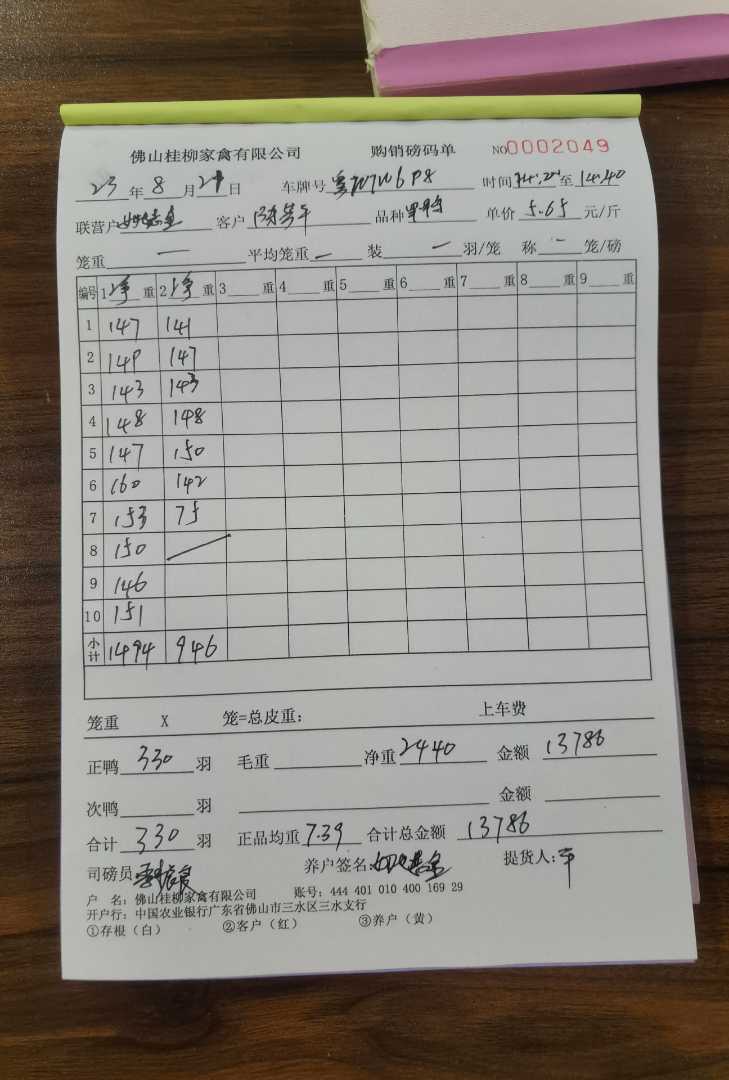 佛山桂柳家禽有限公司 购销磅码单 NO0002049
23年8月29日 车牌号 时间 至14:40
联营户 客户 品种 单价5.65元/斤
笼重 — 平均笼重 — 装 — 羽/笼 称 — 笼/磅
编号 1净重 2净重 3 重 4 重 5 重 6 重 7 重 8 重 9 重
1 147 141
2 149 147
3 143 143
4 148 148
5 147 150
6 160 142
7 153 75
8 150
9 146
10 151
小计 1494 946
笼重 X 笼=总皮重: 上车费
正鸭330羽 毛重 净重2440 金额13786
次鸭 羽 金额
合计330羽 正品均重7.39 合计总金额13786
司磅员 养户签名: 提货人:
户 名:佛山桂柳家禽有限公司 账号:444 401 010 400 169 29
开户行:中国农业银行广东省佛山市三水区三水支行
①存根(白) ②客户(红) ③养户(黄)